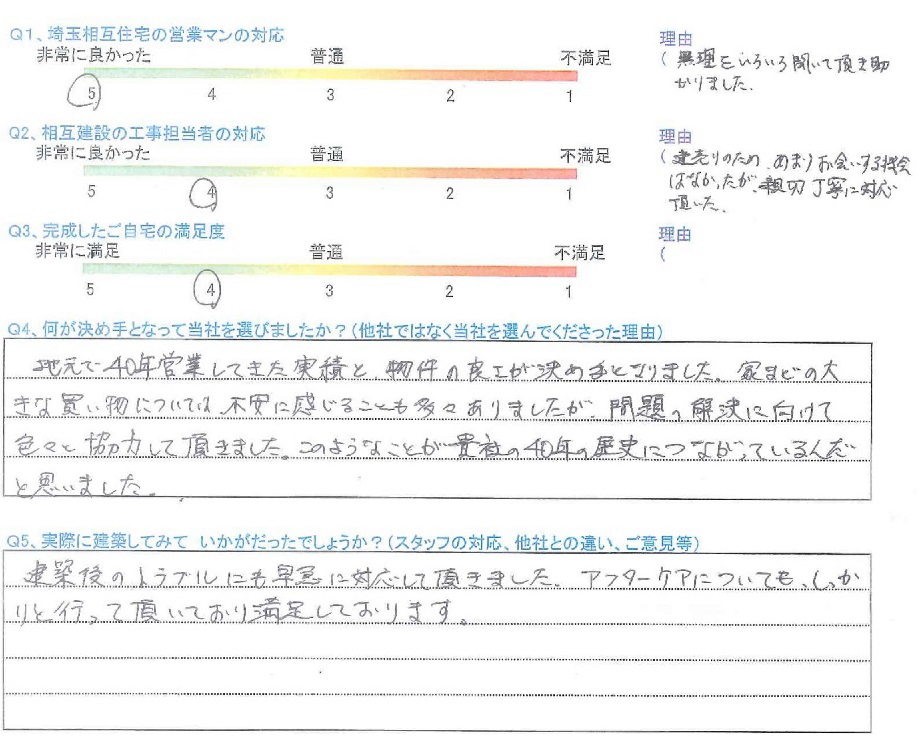 Q1、埼玉相互住宅の営業マンの対応
非常に良かった 普通 不満足
5 4 3 2 1
理由
( 無理をいろいろ聞いて頂き助
かりました。
Q2、相互建設の工事担当者の対応
非常に良かった 普通 不満足
5 4 3 2 1
理由
( 建売りのため、あまりお会いする機会
はなかったが、親切丁寧に対応
頂いた。
Q3、完成したご自宅の満足度
非常に満足 普通 不満足
5 4 3 2 1
理由
(
Q4、何が決め手となって当社を選びましたか？(他社ではなく当社を選んでくださった理由)
地元で40年営業してきた実績と、物件の良さが決め手となりました。家などの大
きな買い物については、不安に感じることも多々ありましたが、問題の解決に向けて
色々と協力して頂きました。このようなことが貴社の40年の歴史につながっているんだ
と思いました。
Q5、実際に建築してみて いかがだったでしょうか？(スタッフの対応、他社との違い、ご意見等)
建築後のトラブルにも早急に対応して頂きました。アフターケアについても、しっか
りと行って頂いており満足しております。